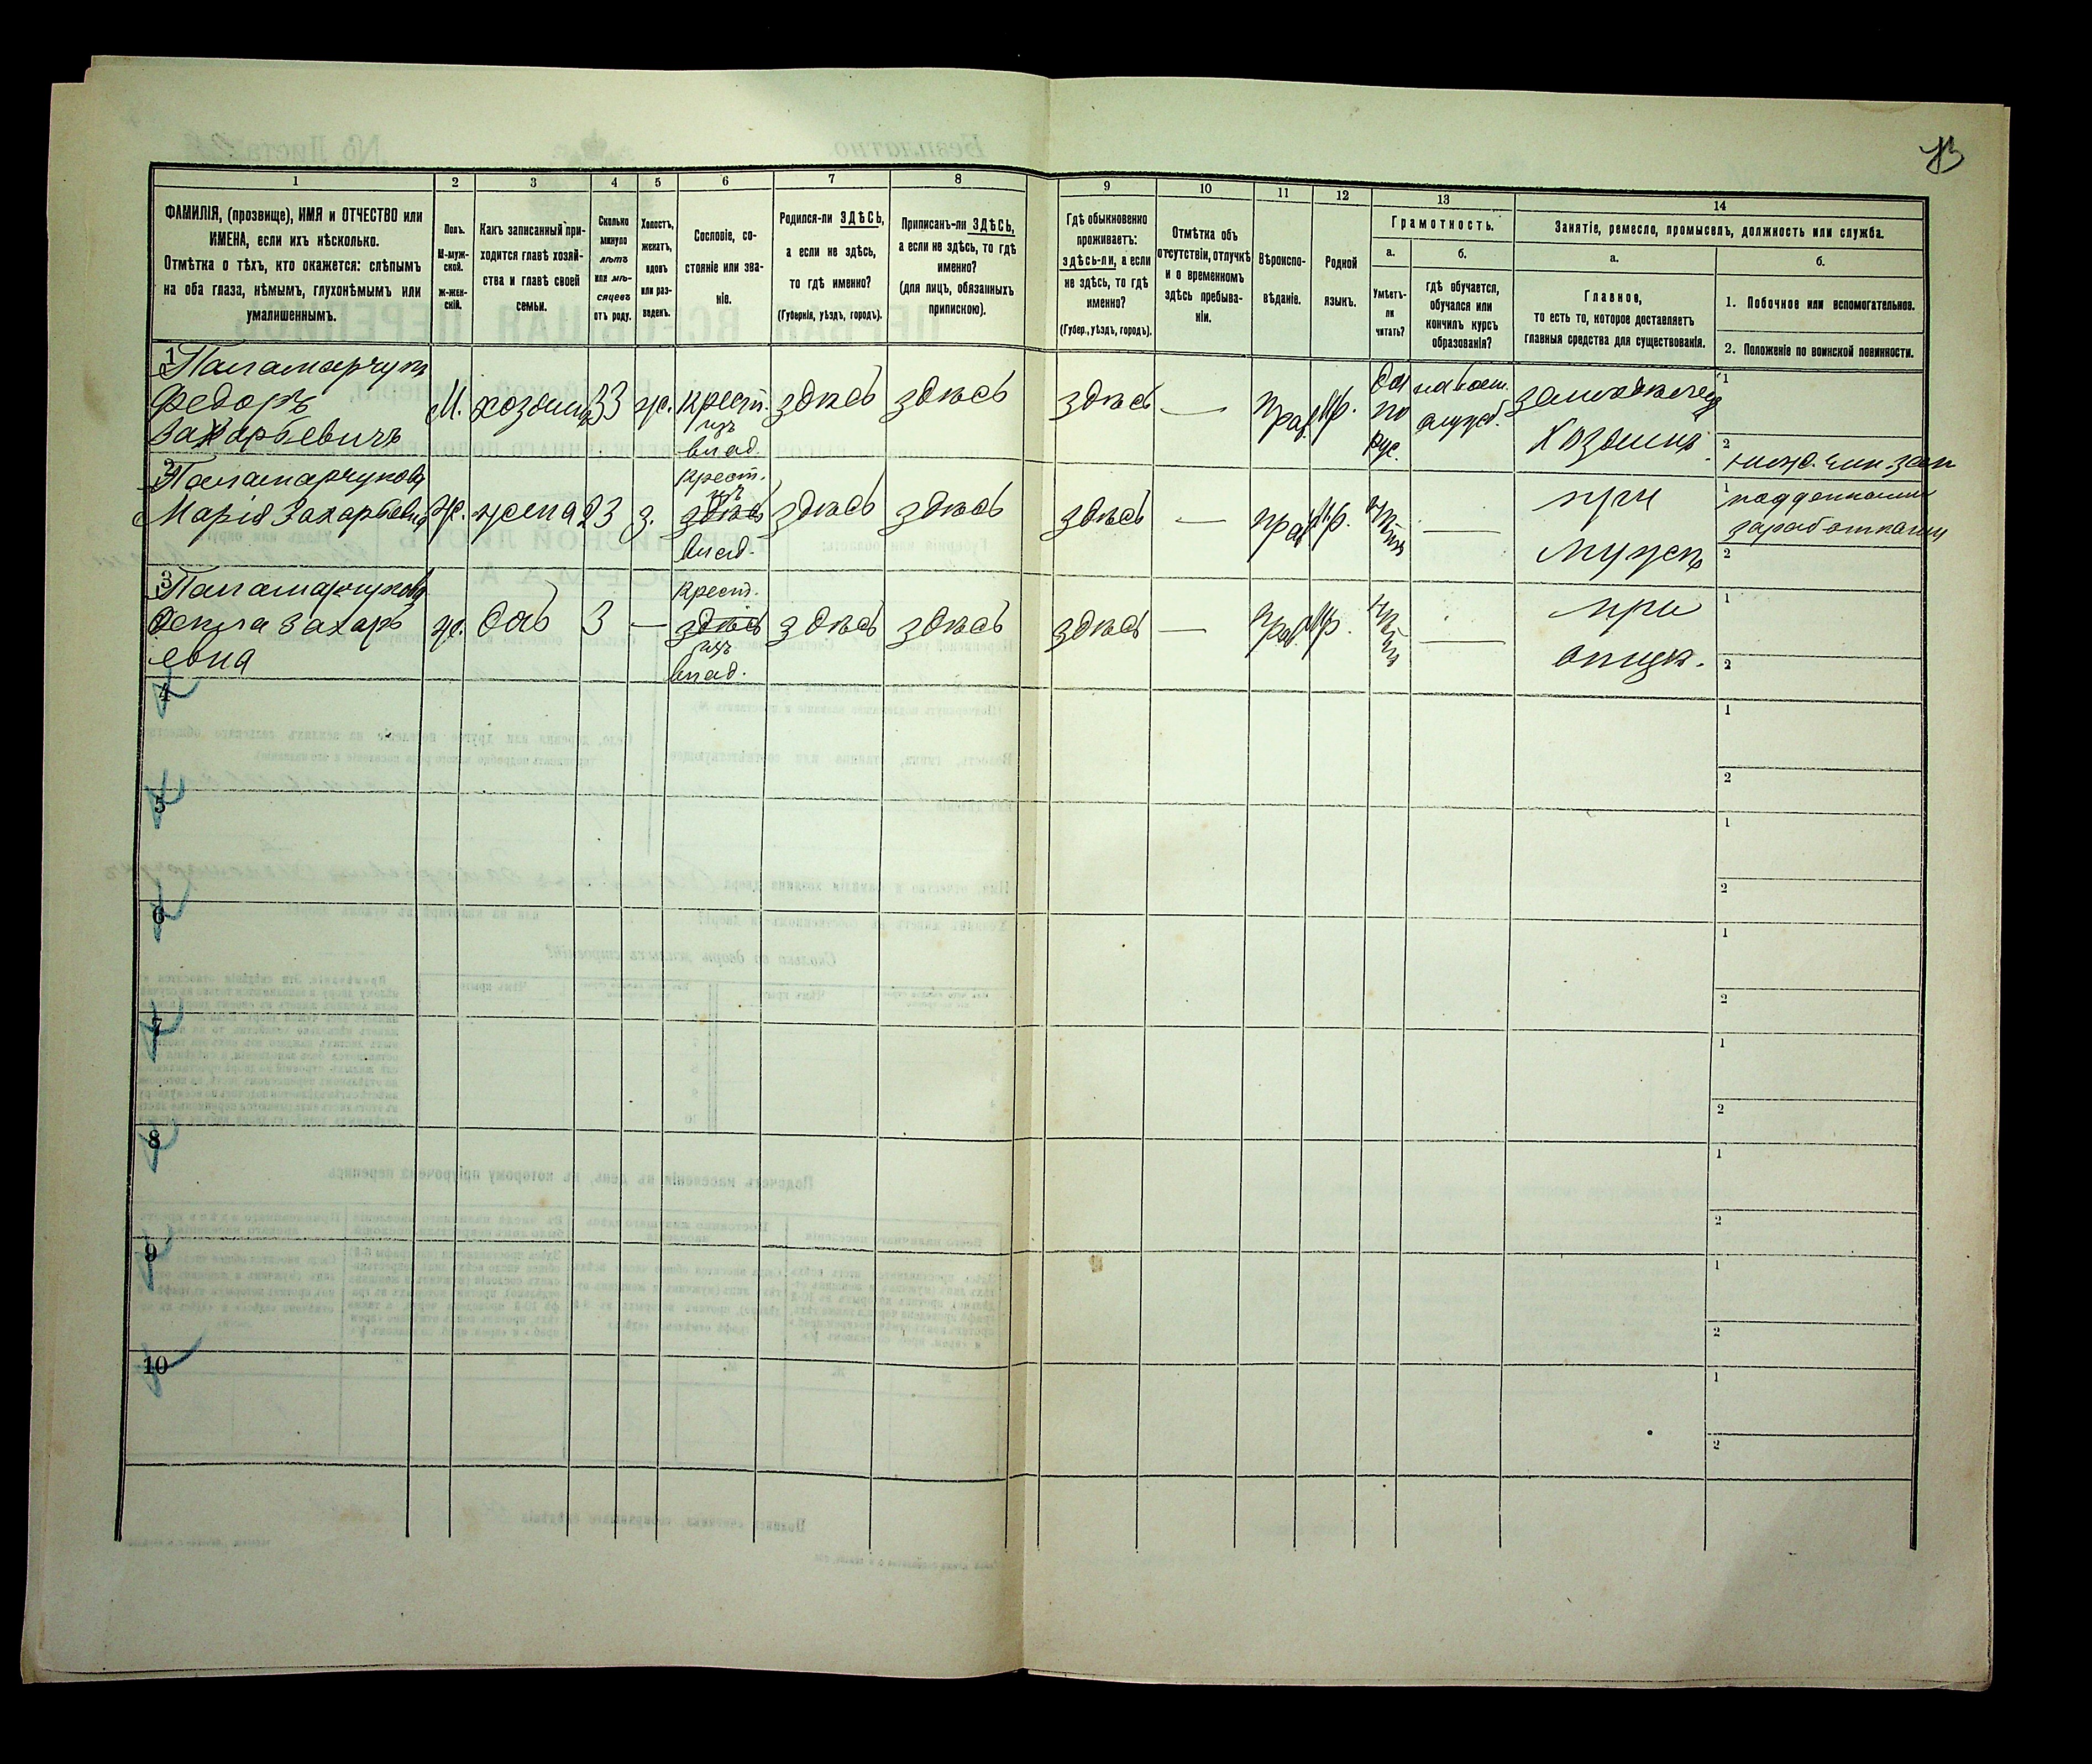 13
1 2 3 4 5 6 7 8 9 10 11 12 13 14
ФАМИЛІЯ, (прозвище), ИМЯ и ОТЧЕСТВО или
ИМЕНА, если ихъ нѣсколько.
Отмѣтка о тѣхъ, кто окажется: слѣпымъ
на оба глаза, нѣмымъ, глухонѣмымъ или
умалишеннымъ.
Полъ.
М-муж-
ской.
Ж-жен-
скій.
Какъ записанный при-
ходится главѣ хозяй-
ства и главѣ своей
семьи.
Сколько
минуло
лѣтъ
или мѣ-
сяцевъ
отъ роду.
Холостъ,
женатъ,
вдовъ
или раз-
веденъ.
Сословіе, со-
стояніе или зва-
ніе.
Родился-ли ЗДѢСЬ,
а если не здѣсь,
то гдѣ именно?
(Губернія, уѣздъ, городъ).
Приписанъ-ли ЗДѢСЬ,
а если не здѣсь, то гдѣ
именно?
(для лицъ, обязанныхъ
припискою).
Гдѣ обыкновенно
проживаетъ:
здѣсь-ли, а если
не здѣсь, то гдѣ
именно?
(Губер., уѣздъ, городъ).
Отмѣтка объ
отсутствіи, отлучкѣ
и о временномъ
здѣсь пребыва-
ніи.
Вѣроиспо-
вѣданіе.
Родной
языкъ.
Грамотность.
а.
Умѣетъ-
ли
читать?
б.
гдѣ обучается,
обучался или
кончилъ курсъ
образованія?
Занятіе, ремесло, промыселъ, должность или служба.
а.
Главное,
то есть то, которое доставляетъ
главныя средства для существованія.
б.
1. Побочное или вспомогательное.
2. Положеніе по воинской повинности.
1 Паламарчукъ
Федоръ
Захарьевичъ
М. хозяинъ 33 ж.
крест.
изъ
влад.
здѣсь здѣсь здѣсь — прав. мр.
да
по
рус.
на воен.
служб.
земледѣлец
хозяинъ.
1
2 нижс. чин. зап
2 Паламарчукова
Марія Захарьевна
ж. жена 23 з.
крест.
изъ
здѣсь
влад.
здѣсь здѣсь здѣсь — прав. мр. нѣтъ —
при
мужѣ
1 поддennими
заработками
2
3 Паламарчукова
Захарь
евна
ж. дочь 3 —
крест.
здѣсь
изъ
влад.
здѣсь здѣсь здѣсь — прав. мр. нѣтъ —
при
отцѣ.
1
2
4
1
2
5
1
2
6
1
2
7
1
2
8
1
2
9
1
2
10
1
2